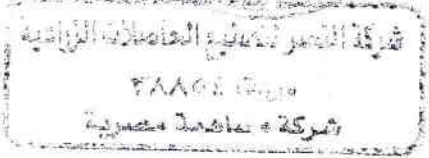 شركة النصر لتصنيع الحاصلات الزراعية
٣٨٨٥٤
شركة مساهمة مصرية